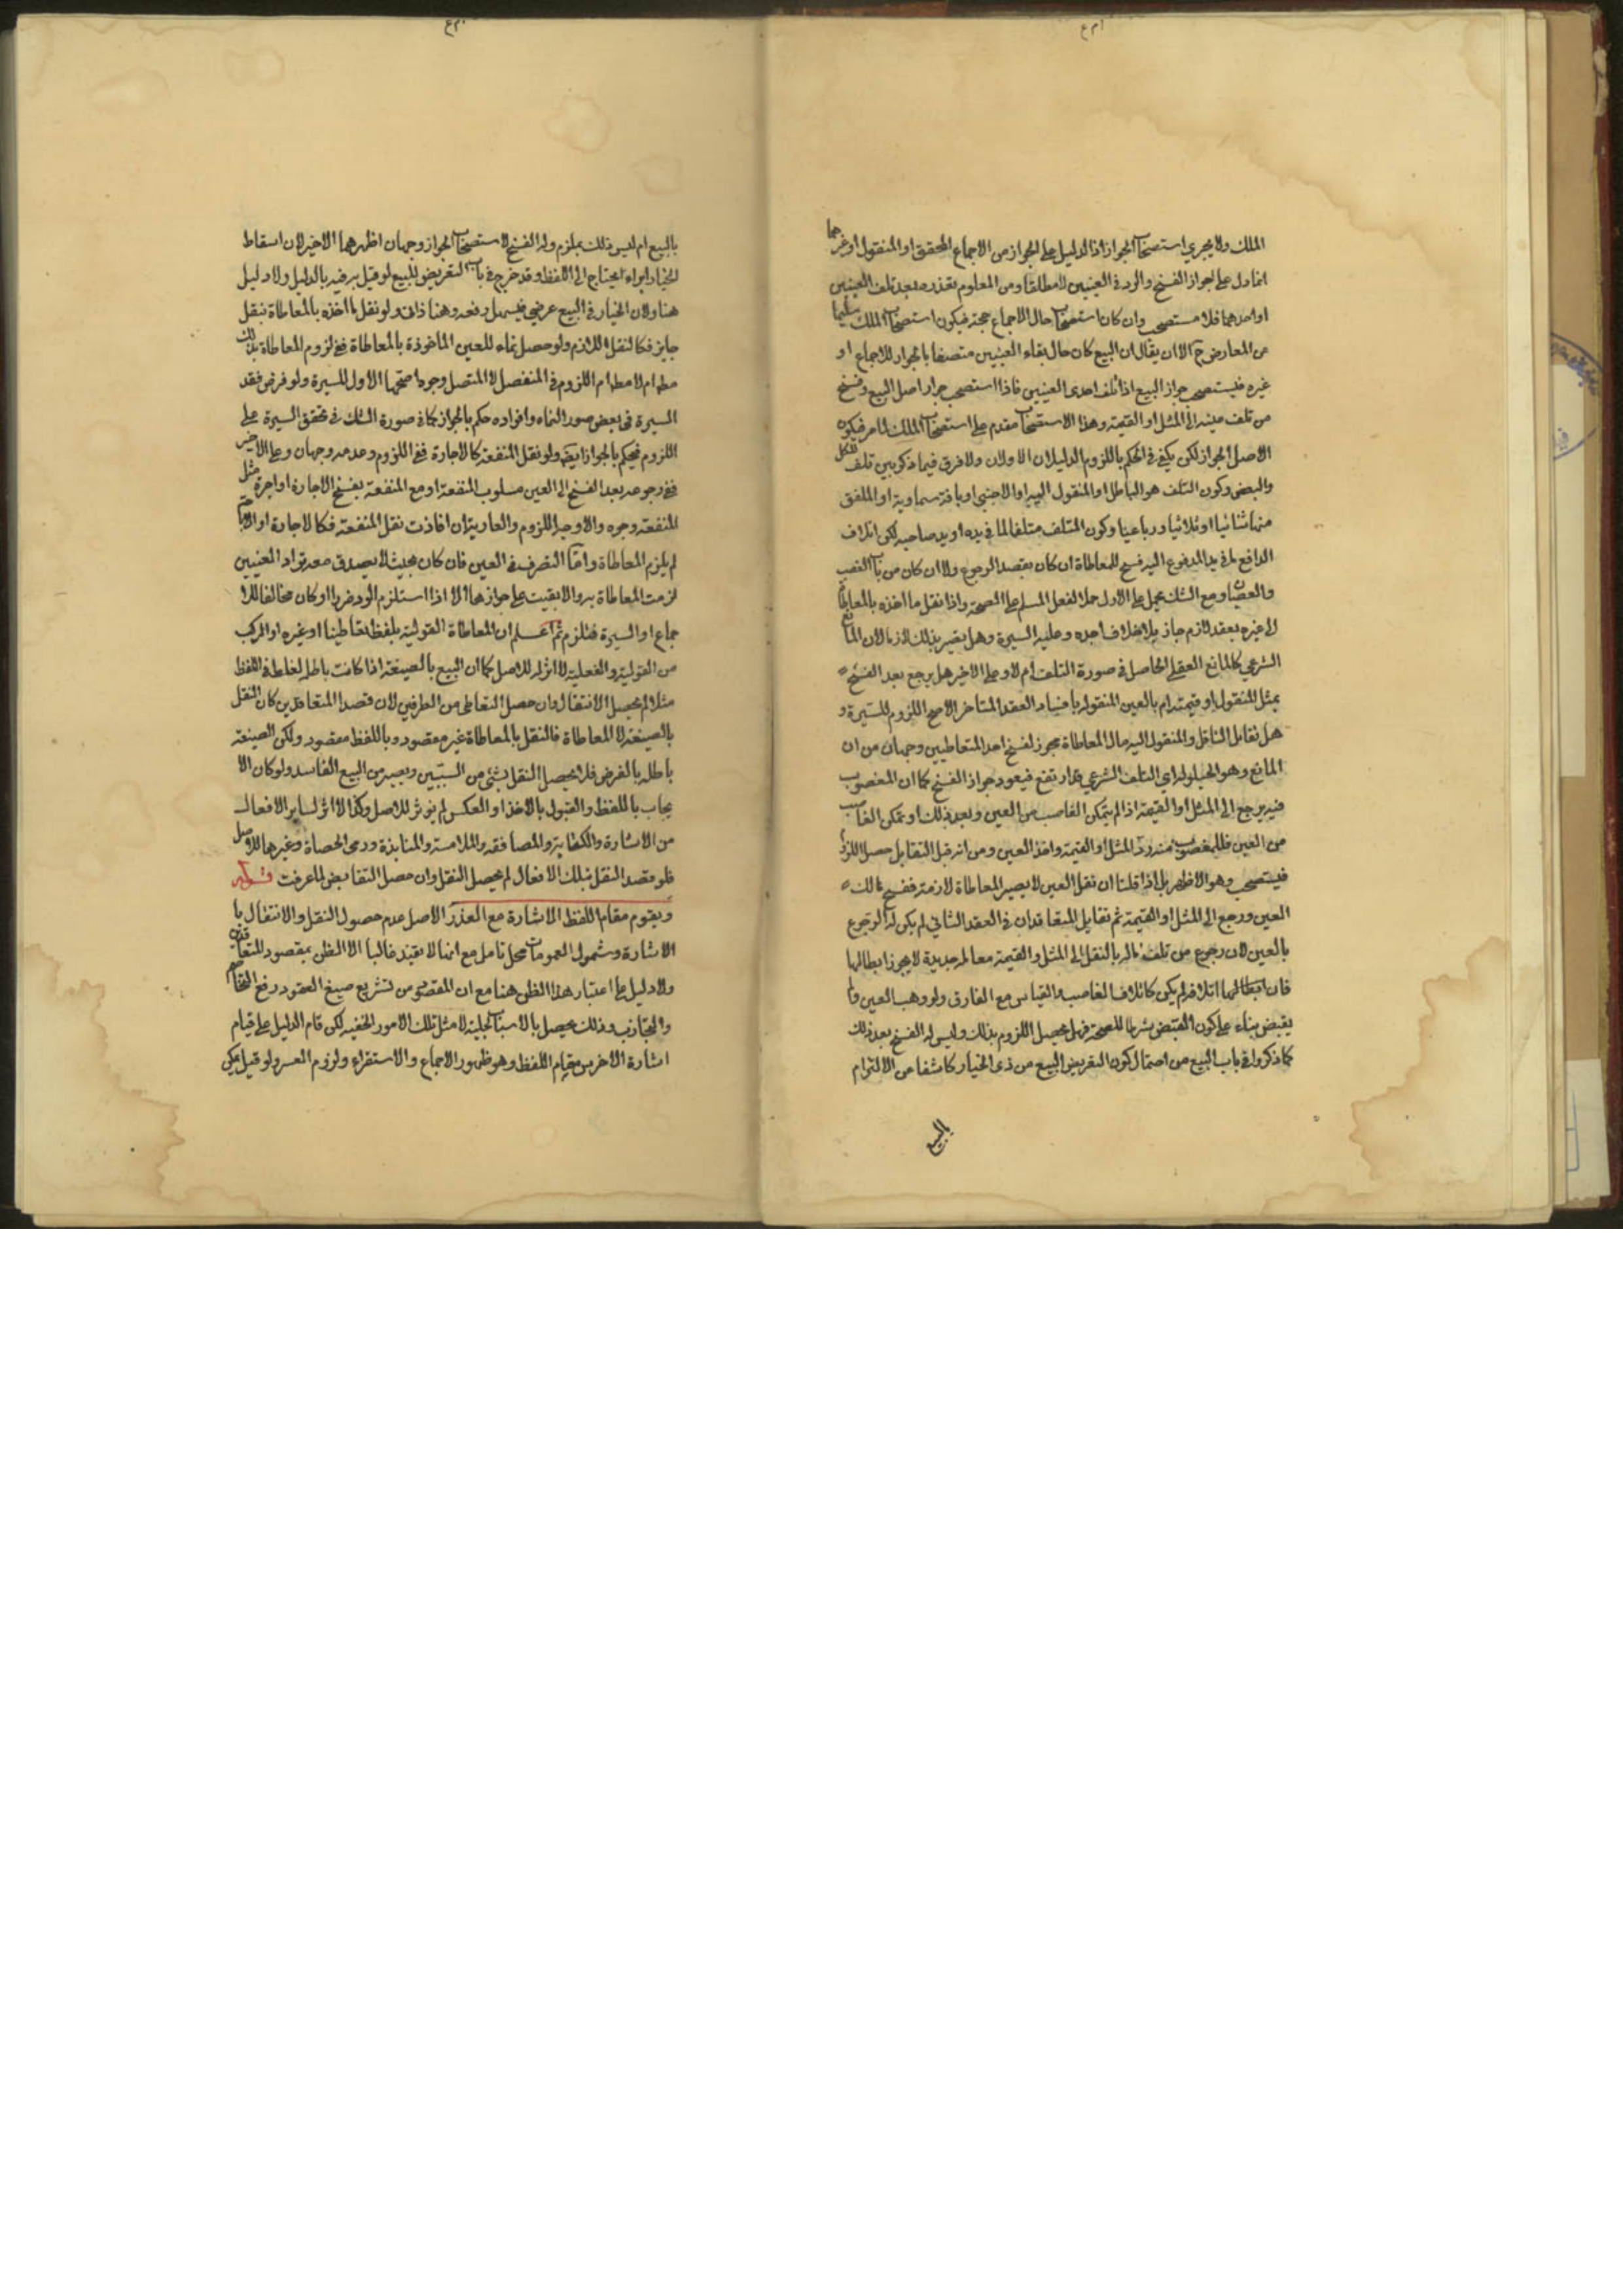 الملك ولا يجري استصحاب الجواز اذ الدليل على الجواز من الاجماع المحقق او المنقول او غيرهما
انما دل على جواز الفسخ والرد في العينين لا مطلقا ومن المعلوم تعذره بعد تلف العينين
او احدهما فلا مستصحب وان كان استصحاب حال الاجماع حجة فيكون استصحاب الملك سليما
من المعارض ح الا ان يقال ان البيع كان حال بقاء العينين متصفا بالجواز للاجماع او
غيره فيستصحب جواز البيع اذا تلف احدى العينين فاذا استصحب جواز اصل البيع وفسخ
من تلف عينه الى المثل او القيمة وهذا الاستصحاب مقدم على استصحاب الملك لما مر فيكون
الاصل الجواز لكن يكفي في الحكم باللزوم الدليلان الاولان ولا فرق فيما ذكر بين تلف الكل
والبعض وكون التلف هو الباطل او المنقول اليه او الاجنبي او بافة سماوية او الملفق
منها ثنائيا او ثلاثيا ورباعيا وكون المتلف متلفا لما في يده او يد صاحبه لكن اتلاف
الدافع لما في يد المدفوع اليه فسخ للمعاطاة ان كان بقصد الرجوع ولا ان كان من باب الغصب
والعصيان ومع الشك يحمل على الاول حملا لفعل المسلم على الصحة واذا نقل ما اخذه بالمعاطاة
الى غيره بعقد لازم جاز بلا خلاف اجده وعليه السيرة وهل يصير بذلك لازما لان المانع
الشرعي كالمانع العقلي الحاصل في صورة التلف ام لا وعلى الاخير هل يرجع بعد الفسخ
بمثل المنقول او قيمته ام بالعين المنقولة بانفساد العقد المتاخر الاصح اللزوم للسيرة و
هل تقابل الناقل والمنقول اليه مال المعاطاة مجوز لفسخ احد المتعاطيين وجهان من ان
المانع وهو الحيلولة اي التلف الشرعي قد ارتفع فيعود جواز الفسخ كما ان المغصوب
فيه يرجع الى المثل او القيمة اذا لم يتمكن الغاصب من العين وبعد ذلك لو تمكن الغاصب
من العين فللمغصوب منه رد المثل او القيمة واخذ العين ومن انه قبل التقابل حصل اللزوم
فيستصحب وهو الاظهر بل اذا قلنا ان نقل العين لا يصير المعاطاة لازمة ففسخ مالك
العين ورجع الى المثل او القيمة ثم تقايل المتعاقدان في العقد الثاني لم يكن له الرجوع
بالعين لان رجوع من تلف ماله بالنقل الى المثل والقيمة معاملة جديدة لا يجوز ابطالها
فان ابطالها اتلافه لم يكن كاتلاف الغاصب والقياس مع الفارق ولو وهب العين ولم
يقبض بناء على كون القبض شرطا للصحة فهل يحصل اللزوم بذلك وليس له الفسخ بعد ذلك
كما ذكروا في باب البيع من احتمال كون التعريض للبيع من ذي الخيار كاشفا من الالتزام
بالبيع
بالبيع ام ليس ذلك بملزم وله الفسخ لاستصحاب الجواز وجهان اظهرهما الاخير لان اسقاط
الخيار وابراء يحتاج الى اللفظ وقد خرج في باب التعريض للبيع لو قيل به فيه بالدليل ولا دليل
هنا ولان الخيار في البيع عرضي فيسهل رفعه وهنا ذاتي ولو نقل ما اخذه بالمعاطاة بنقل
جايز فكالنقل اللازم ولو حصل نماء للعين الماخوذة بالمعاطاة ففي لزوم المعاطاة بذلك
مطلوم ام لا مطلوم ام اللزوم في المنفصل لا المتصل وجوه اصحها الاول للسيرة ولو فرض فقد
السيرة في بعض صور النماء وافراده حكم بالجواز كما في صورة الشك في تحقق السيرة على
اللزوم فيحكم بالجواز ايضا ولو نقل المنفعة كالاجارة ففي اللزوم وعدمه وجهان وعلى الاخير
ففي رجوعه بعد الفسخ الى العين مسلوب المنفعة او مع المنفعة بفسخ الاجارة او اجرة مثل
المنفعة وجوه والاوجه اللزوم والعارية ان افادت نقل المنفعة فكالاجارة او الاباحة
لم يلزم المعاطاة واما التصرف في العين فان كان بحيث لا يصدق معه تراد العينين
لزمت المعاطاة به والا بقيت على جوازها الا اذا استلزم الرد ضررا او كان مخالفا للا
جماع او السيرة فتلزم ثم اعلم ان المعاطاة القولية بلفظ تعاطينا او غيره او المركب
من القولية والفعلية لا اثر له للاصل كما ان البيع بالصيغة اذا كانت باطلة لغلط في اللفظ
مثلا لم يحصل الانتقال وان حصل التعاطي من الطرفين لان قصد المتعاقدين كان النقل
بالصيغة لا المعاطاة فالنقل بالمعاطاة غير مقصود وباللفظ مقصود ولكن الصيغة
باطلة بالفرض فلا يحصل النقل بشيء من السببين ويصير من البيع الفاسد ولو كان الا
يجاب باللفظ والقبول بالاخذ او العكس لم يؤثر للاصل وكذا لا اثر لساير الافعال
من الاشارة والكتابة والمصافقة والملامسة والمنابذة ورمي الحصاة وغيرها للاصل
فلو قصد النقل بتلك الافعال لم يحصل النقل وان حصل التقابض لما عرفت قوله
ويقوم مقام اللفظ الاشارة مع العذر الاصل عدم حصول النقل والانتقال با
الاشارة وشمول العمومات محل تامل مع انها لا تفيد غالبا الا الظن بمقصود المتعاقدين
ولا دليل على اعتبار هذا الظن هنا مع ان المقصود من تشريع صيغ العقود رفع التخاصم
والتجاذب وذلك يحصل بالاسباب الجلية لا مثل تلك الامور الخفية لكن قام الدليل على قيام
اشارة الاخرس مقام اللفظ وهو ظهور الاجماع والاستقراء ولزوم العسر ولو قيل يمكن